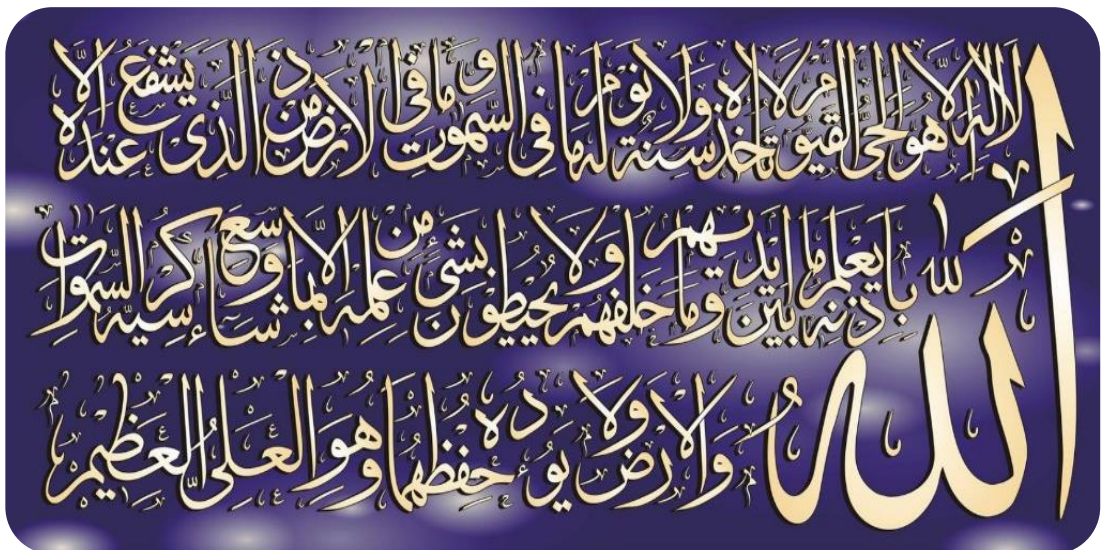 الله لا اله الا هو الحي القيوم لا تاخذه سنة ولا نوم له ما في السموت وما في الارض من ذ الذي يشفع عنده الا
باذنه يعلم ما بين ايديهم وما خلفهم ولا يحيطون بشيء من علمه الا بما شاء وسع كرسيه السموات
والارض ولا يوده حفظهما وهو العلي العظيم